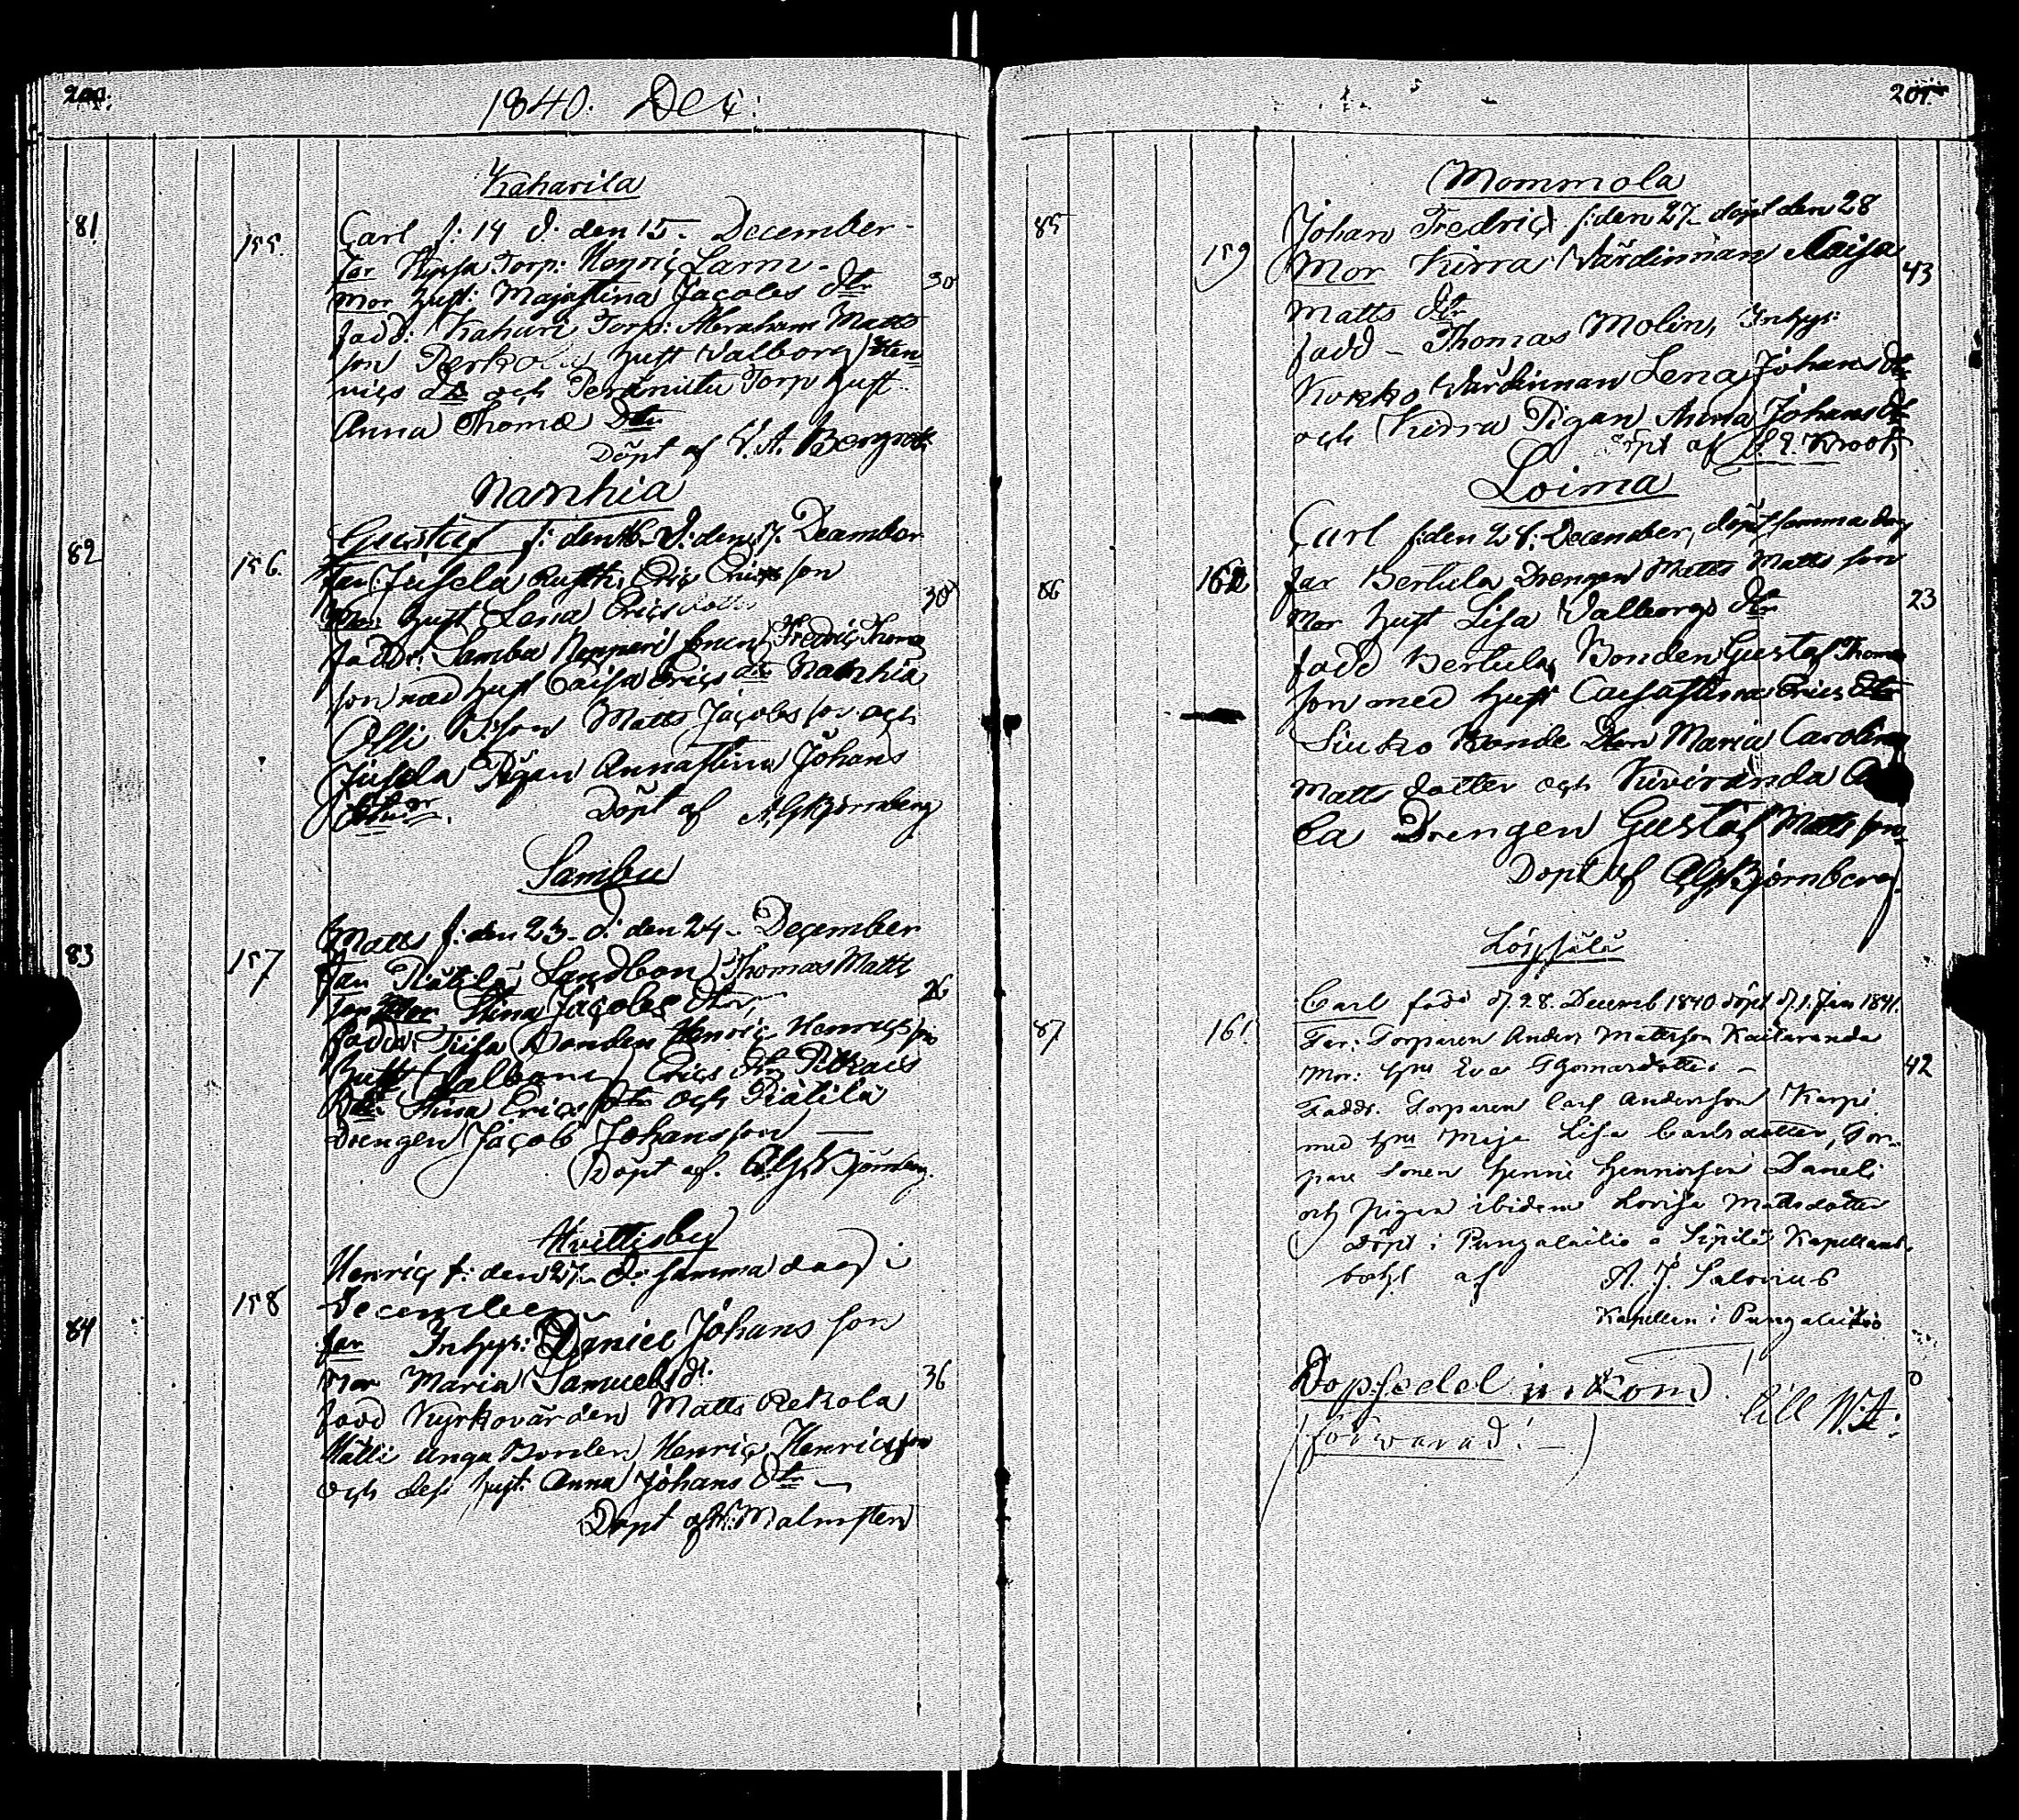 200.
1840. Dec:
Kaharila
81.
155.
Carl f: 14 d: den 15 - December -
far Torp: Henric Larm -
30
mor hust: Majastina Jacobs dtr
fadd: Kahari Torp: Abraham Matts
son hust Valborg Hen
rics dr och Torp hust
Anna Thomæ Dtr
Döpt af V. A. Bergroth
Nanhia
82
156.
Gustaf f: den 16 d: den 17. December
Far: Jusela Rusth: Eric Erics son
30
Mor hust Lena Erics dotter
fadd: Sambu Fredric Thomæ
son med hust Caisa Erics dtr Nanhia
Olli Matts Jacobsson och
Jusela Pigan Annastina Johans
dotter. Döpt af A.G. Björnberg
Sambu
83
157
Matts f: den 23 - d: den 24 - December
Far Piätilä Landbon Thomas Matts
son Mor Stina Jacobs dtr,
26
fadd: Bonden Henric Henricsson
hust Valborg Erics dtr
Stina Erics dtr och Piätilä
Drengen Jacob Johansson —
Döpt af. A.G. Björnberg.
Hvittisby
Henric f: den 27 - d: samma dag i
158
December
84
far Inhys: Daniel Johans son
mor Maria Samuels dr.
36
fadd Kyrkovärden Matts Rekola
unga Bonden Henric Henricsson
och dess hust: Anna Johans dtr —
Döpt af H: Malmsten
201.
Mommola
85
159
Johan Fredric f: den 27 - döpt den 28
Mor Kirra Värdinnan Caisa
43
Matts dtr
fadd - Thomas Molin, Inhys:
Kokko Värdinnan Lena Johans dtr
och Kirra Pigan Anna Johans dr
döpt af Krook
Loima
Carl f: den 28: December, döpt samma dag
86
160
far Bertula Drengen Matts Matts son
23
Mor hust Lisa Valborgs dtr
fadd Bertula Bonden Gustaf Thomæ
son med hust Caisastina Erics dtr
Siuko Bonde Dtren Maria Carolina
Matts dotter och Kiviranda
Drengen Gustaf Matts son
Döpt af A.G. Björnberg.
Carl född d. 28. Decemb 1840 döpt d. 1. Jan 1841.
87
161.
Far: Torparen Anders Mattsson Kaitaranda
42
Mor: hru Eva Thomasdotter -
Faddr. Torparen Carl Andersson Karpi
med hru Maja Lisa Carlsdotter, Tor-
pare sonen Henric Henricsson Daneli
och Pigan ibidem Lovisa Mattsdotter
döpt i Pungalaitio å Sipilä Kapellans-
bohl af A. J. Salonius
Kapellan i Pungalaitio
Dopsedel in. kom till W.A:
förwarad! —